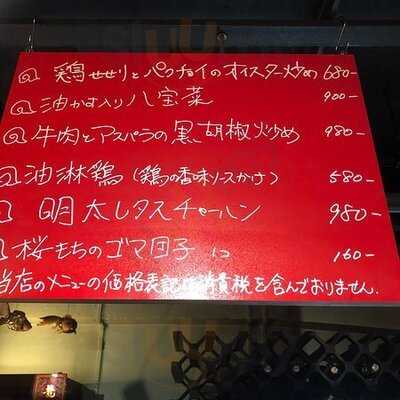 鶏せせりとパクチョイのオイスター炒め 680-
油かす入り八宝菜 900-
牛肉とアスパラの黒胡椒炒め 980-
油淋鶏(鶏の香味ソースかけ) 580-
明太レタスチャーハン 980-
桜もちのゴマ団子 1コ 160-
当店のメニューの価格表記は消費税を含んでおりません.